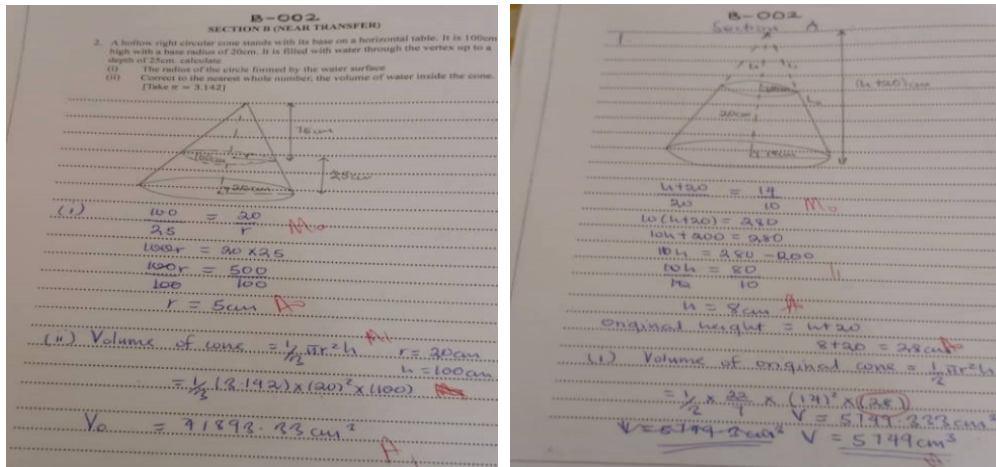 B-002
SECTION B (NEAR TRANSFER)
2. A hollow right circular cone stands with its base on a horizontal table. It is 100cm
high with a base radius of 20cm. It is filled with water through the vertex up to a
depth of 25cm. calculate
(i) The radius of the circle formed by the water surface
(ii) Correct to the nearest whole number, the volume of water inside the cone.
[Take π = 3.142]
25cm
20cm
(i) 100/25 = 20/r M0
100r = 20 x 25
100r/100 = 500/100
r = 5cm A0
(ii) Volume of cone = 1/3 πr²h M1 r = 20cm
h = 100cm
= 1/3 (3.142) x (20)² x (100)
V0 = 41893.33cm³
A1
B-002
Section A
1
(h+20)cm
20cm
14cm
h+20/20 = 14/10 M0
10(h+20) = 280
10h + 200 = 280
10h = 280 - 200
10h/10 = 80/10
h = 8cm A0
original height = h+20
8+20 = 28cm A0
(i) Volume of original cone = 1/3 πr²h
= 1/3 x 22/7 x (14)² x (28)
V = 5749.333cm³
V = 5749.3cm³ V = 5749cm³